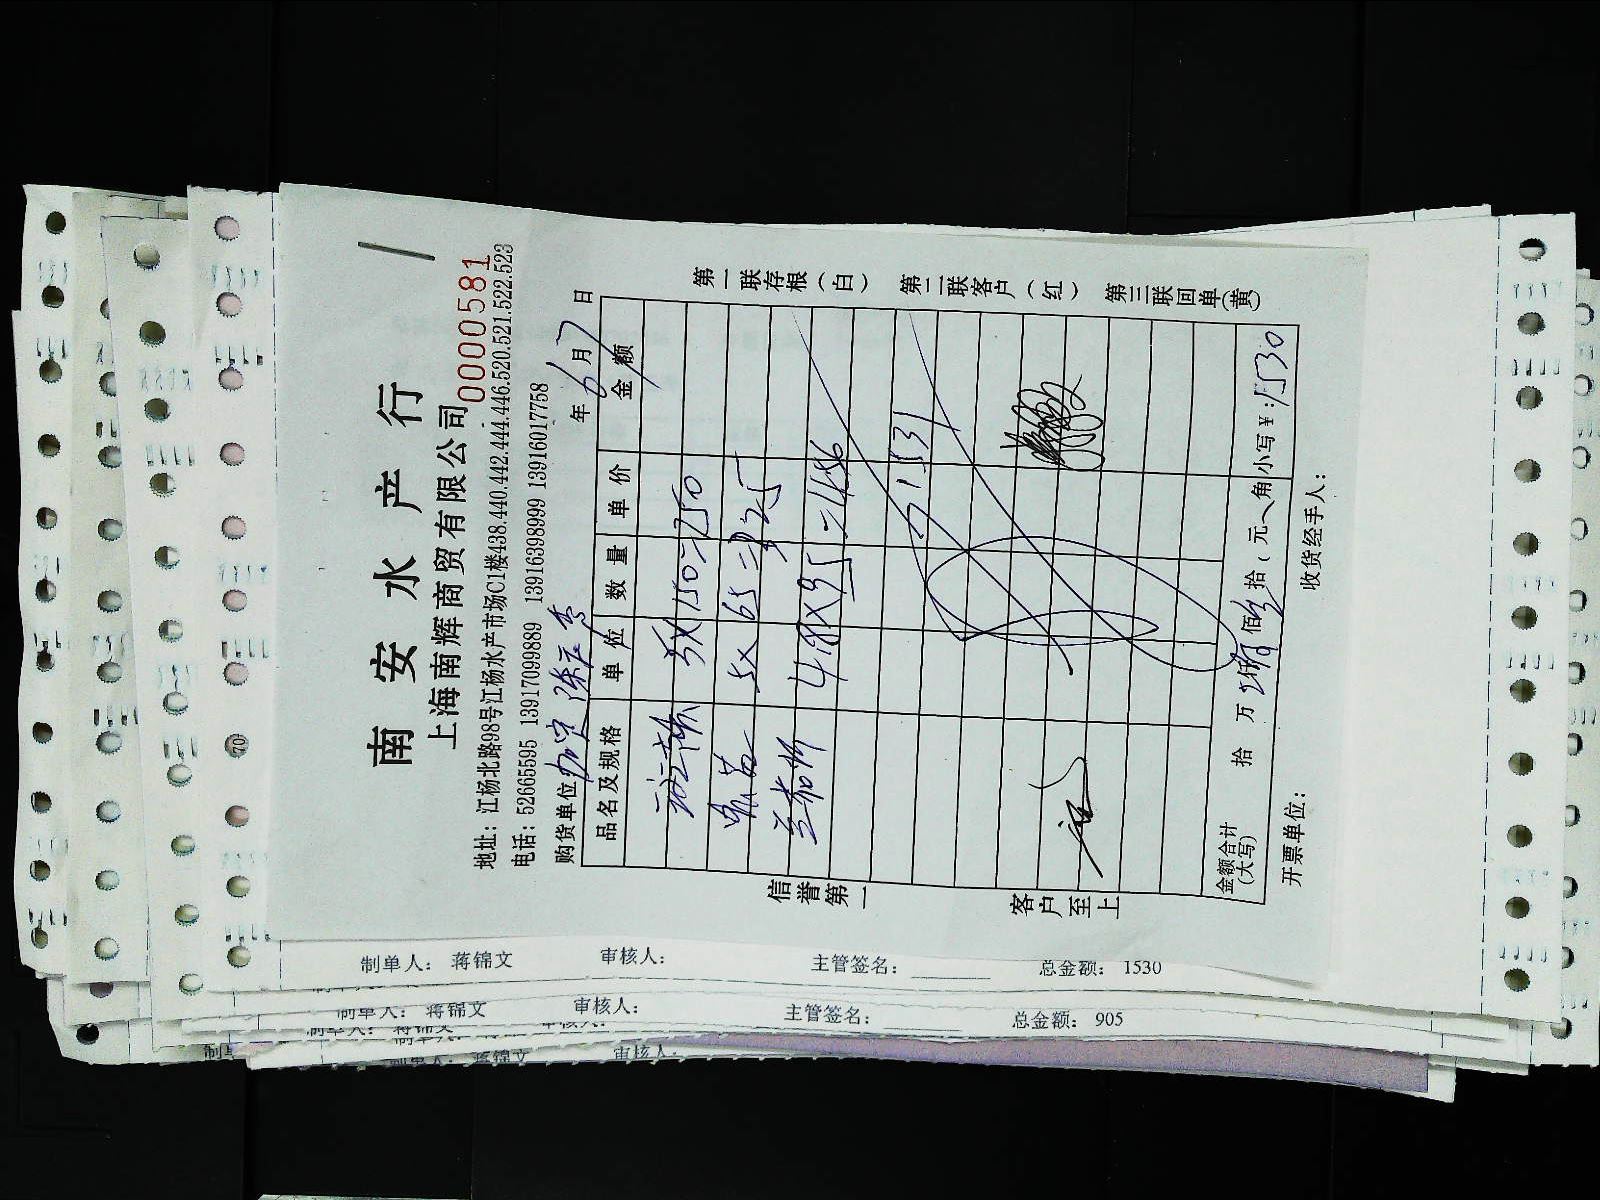 南安水产行
上海南辉商贸有限公司
0000581
地址：江杨北路98号江杨水产市场C1楼438.440.442.444.446.520.521.522.523
电话：52665595 13917099889 13916398999 13916017758
购货单位 年6月7日
品名及规格 单位 数量 单价 金额
5×150=750
5×65=325
=456
1531
金额合计（大写） 拾 万 仟 佰 拾 元 角 小写￥：1530
开票单位： 收货经手人：
信誉第一
客户至上
第一联存根（白） 第二联客户（红） 第三联回单（黄）
制单人： 蒋锦文 审核人： 主管签名： 总金额： 1530
制单人： 蒋锦文 审核人： 主管签名： 总金额： 905
制单人： 蒋锦文 审核人：
制单人： 蒋锦文 审核人：
70